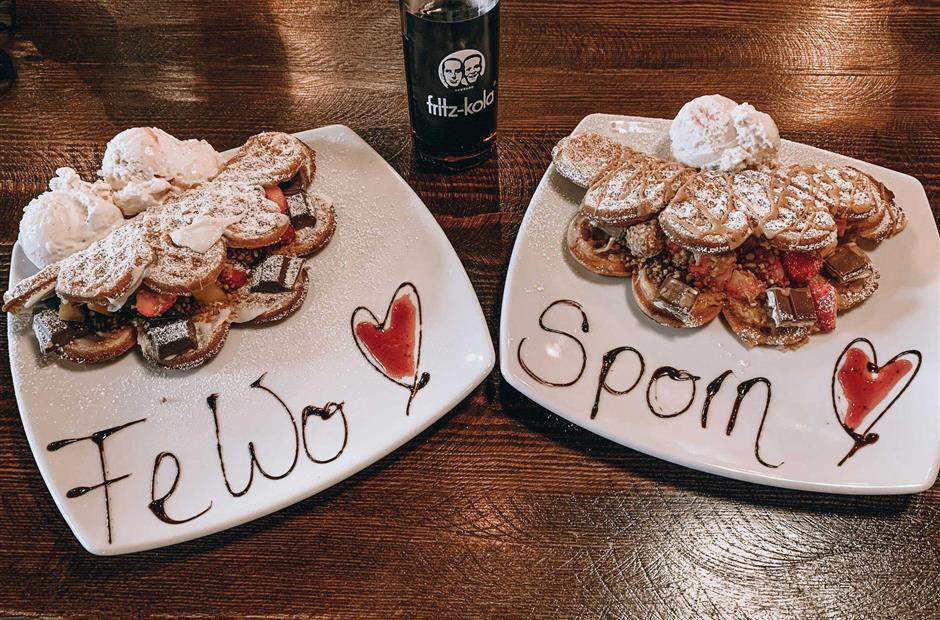 HAMBURG
fritz-kola
FeWo
Sporn